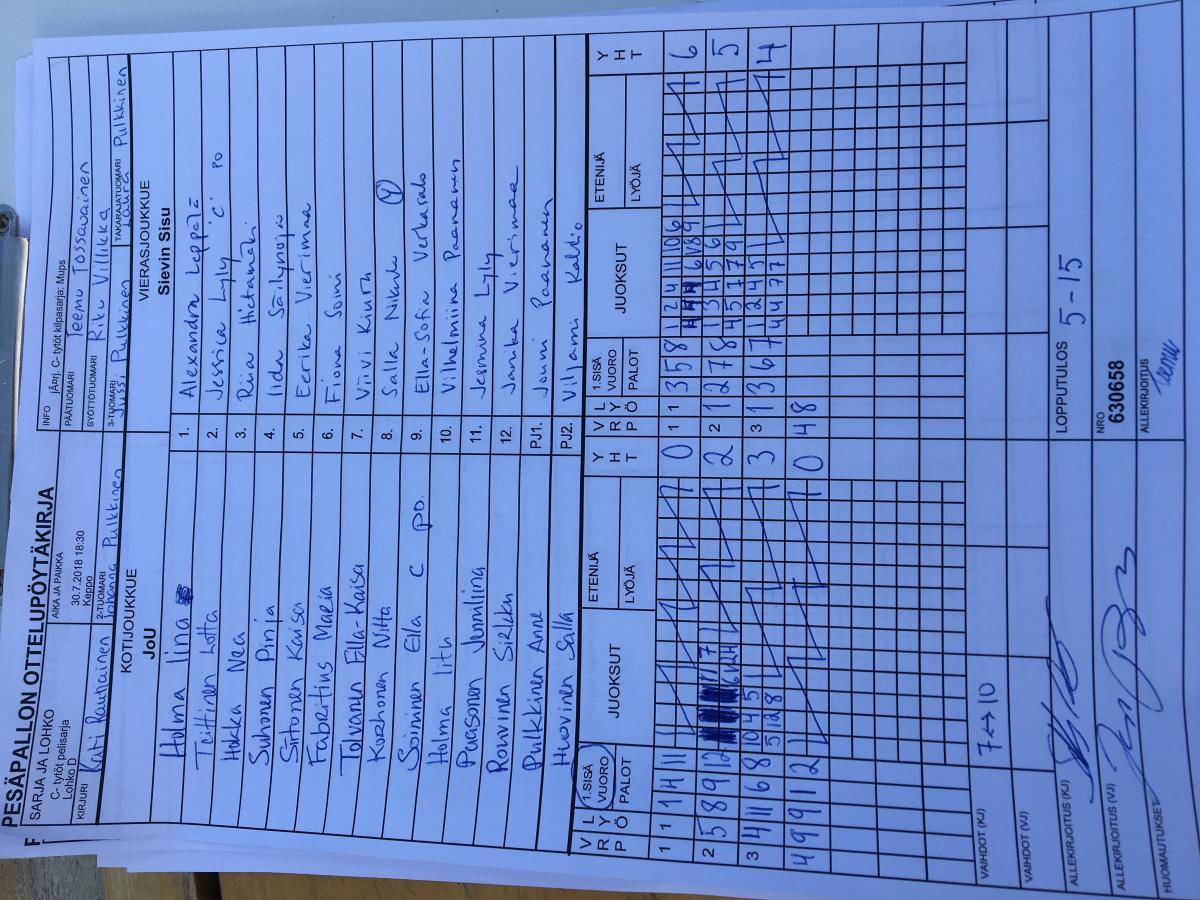 PESÄPALLON OTTELUPÖYTÄKIRJA
SARJA JA LOHKO
C- tytöt pelisarja
Lohko D
AIKA JA PAIKKA
30.7.2018 18:30
Keppo
INFO jÄprj. C- tytöt kilpasarja: Mups
PÄÄTUOMARI Teemu Tossavainen
SYÖTTÖTUOMARI Riku Villikka
KIRJURI Kati Rautiainen
2-TUOMARI Johanna Pulkkinen
3-TUOMARI Jussi Pulkkinen
TAKARAJATUOMARI Laura Pulkkinen
KOTIJOUKKUE
JoU
VIERASJOUKKUE
Sievin Sisu
Holma Iina 1. Alexandra Leppälä
Teittinen Lotta 2. Jessica Lyly 'C' PO
Hokka Nea 3. Riia Hietamäki
Suhonen Pinja 4. Iida Säilynoja
Siitonen Kaisa 5. Eerika Vierimaa
Fabritius Maria 6. Fiona Soini
Tolvanen Ella-Kaisa 7. Viivi Kiuru
Korhonen Nitta 8. Salla Nikula
Soininen Ella C po. 9. Ella-Sofia Verkasalo
Holma Iith 10. Vilhelmiina Paananen
Paasonen Junniliina 11. Jesmina Lyly
Rouvinen Sirkku 12. Janika Vierimaa
Pulkkinen Anne PJ1. Jouni Paananen
Huovinen Salla PJ2. Viljami Kallio
V R P L Y Ö 1.SISÄ VUORO PALOT JUOKSUT ETENIJÄ LYÖJÄ Y H T V R P L Y Ö 1.SISÄ VUORO PALOT JUOKSUT ETENIJÄ LYÖJÄ Y H T
1 1 1 4 11 0 1 1 3 5 8 1 2 4 11 10 6 6
2 5 8 9 12 2 2 1 2 7 8 1 3 4 5 6 5
4 5 7 7 9
3 4 11 6 8 10 4 5 3 3 1 3 6 7 1 2 4 5 4
5 12 8 4 4 7 7
4 9 9 11 2 0 4 8
VAIHDOT (KJ) 7↔10
VAIHDOT (VJ)
ALLEKIRJOITUS (KJ)
LOPPUTULOS 5-15
ALLEKIRJOITUS (VJ)
NRO
630658
HUOMAUTUKSET
ALLEKIRJOITUS
Teemu